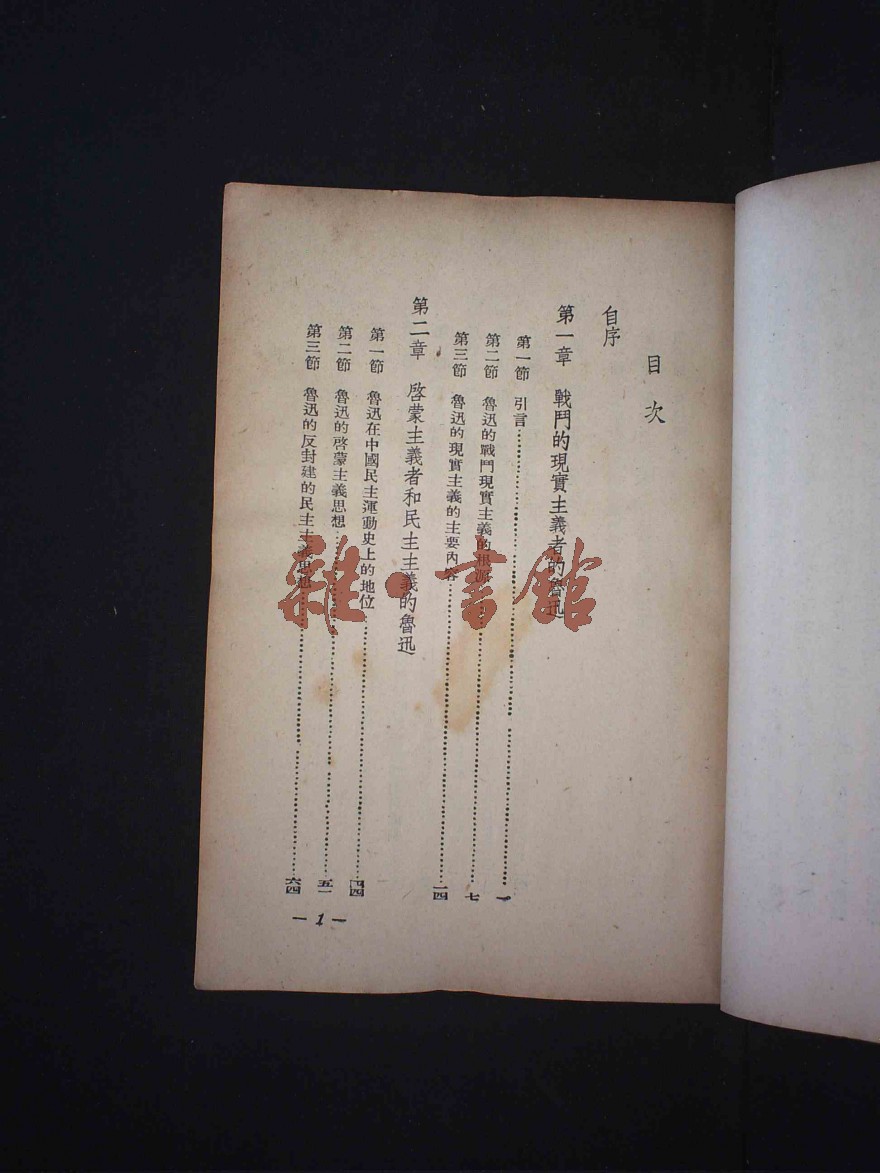 目次
自序
第一章 戰鬥的現實主義者的魯迅
第一節 引言 一
第二節 魯迅的戰鬥現實主義的根源 七
第三節 魯迅的現實主義的主要內容 二四
第二章 啓蒙主義者和民主主義的魯迅
第一節 魯迅在中國民主運動史上的地位 四四
第二節 魯迅的啓蒙主義思想 五一
第三節 魯迅的反封建的民主主義思想 六四
— 1 —
雜·書館